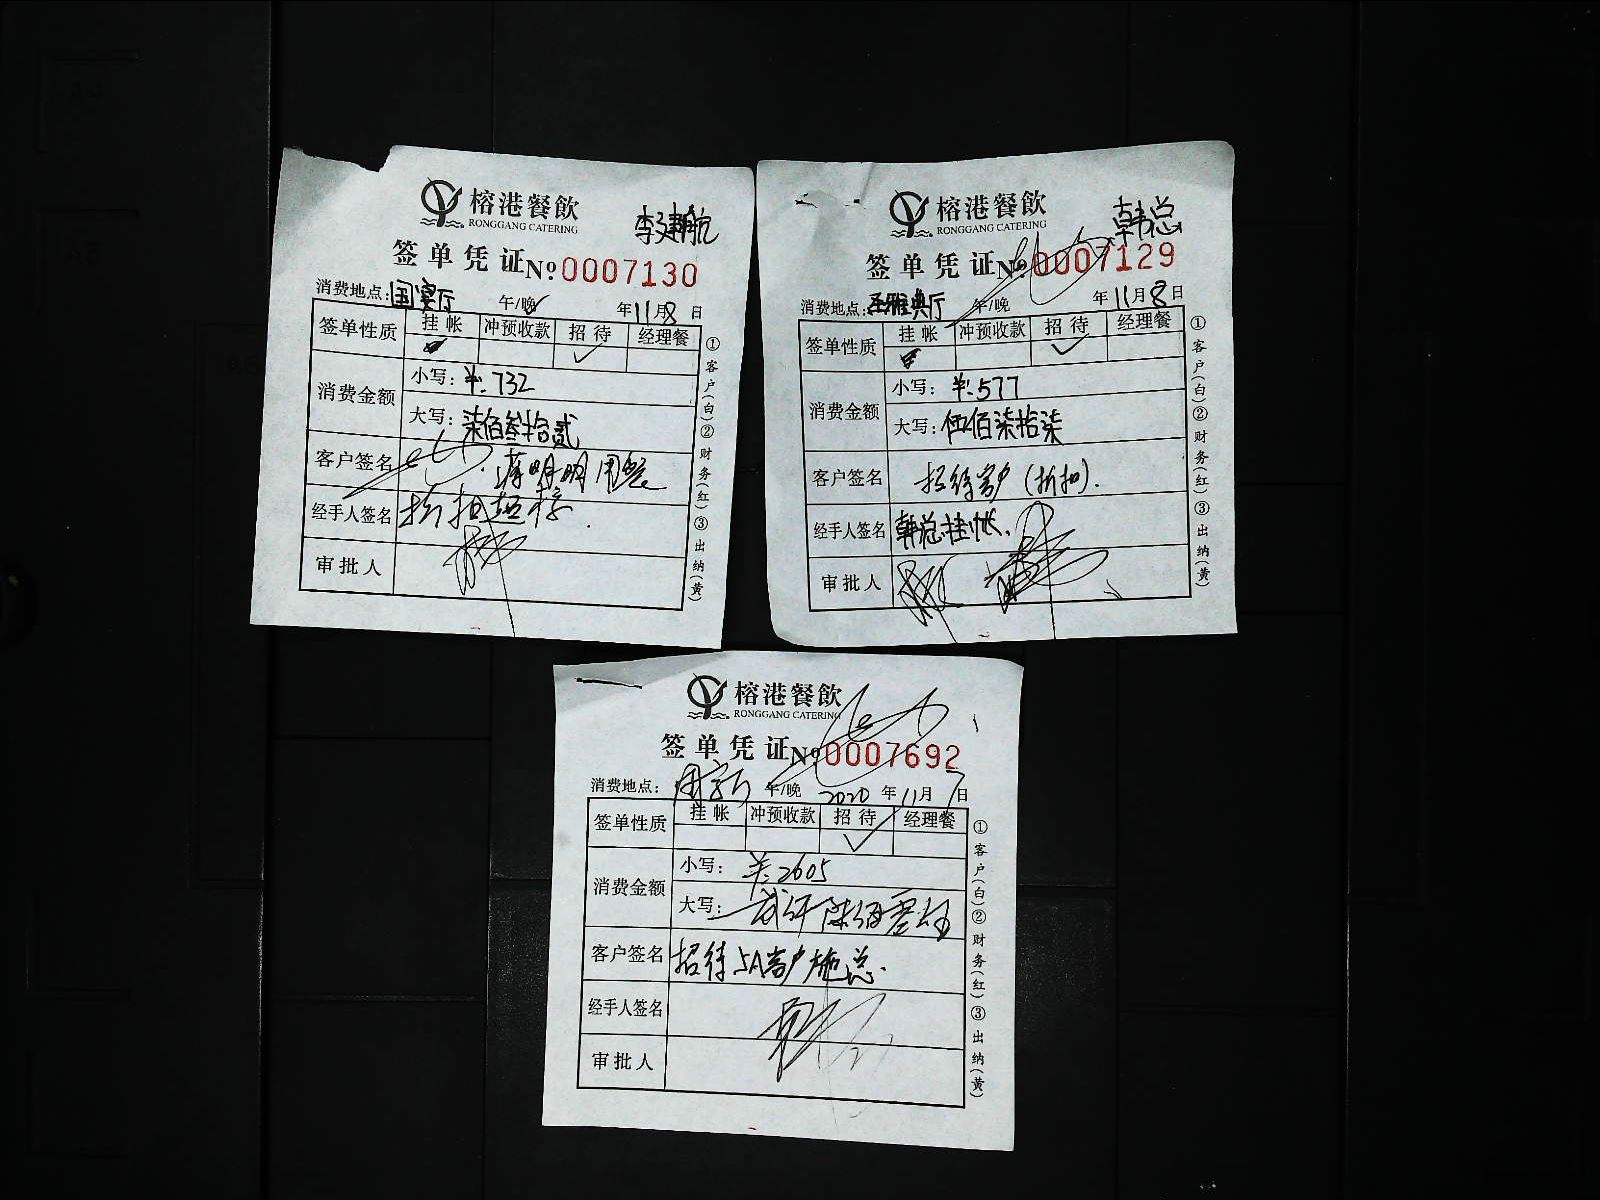 榕港餐飲
RONGGANG CATERING
李建航
签单凭证 № 0007130
消费地点: 国宴厅 午/晚 年11月8日
签单性质 挂帐 冲预收款 招待 经理餐
✓
消费金额 小写: ¥.732
大写: 柒佰叁拾贰
客户签名 蒋明明用餐
经手人签名
审批人
①客户(白)②财务(红)③出纳(黄)
榕港餐飲
RONGGANG CATERING
韩总
签单凭证 № 0007129
消费地点: 圣雅典厅 午/晚 年11月8日
签单性质 挂帐 冲预收款 招待 经理餐
✓
消费金额 小写: ¥.577
大写: 伍佰柒拾柒
客户签名 招待客户(折扣).
经手人签名 韩总挂帐.
审批人
①客户(白)②财务(红)③出纳(黄)
榕港餐飲
RONGGANG CATERING
签单凭证 № 0007692
消费地点: 国宴厅 午/晚 2020年11月7日
签单性质 挂帐 冲预收款 招待 经理餐
✓
消费金额 小写: ¥.2605
大写:
客户签名 招待5A客户施总.
经手人签名
审批人
①客户(白)②财务(红)③出纳(黄)